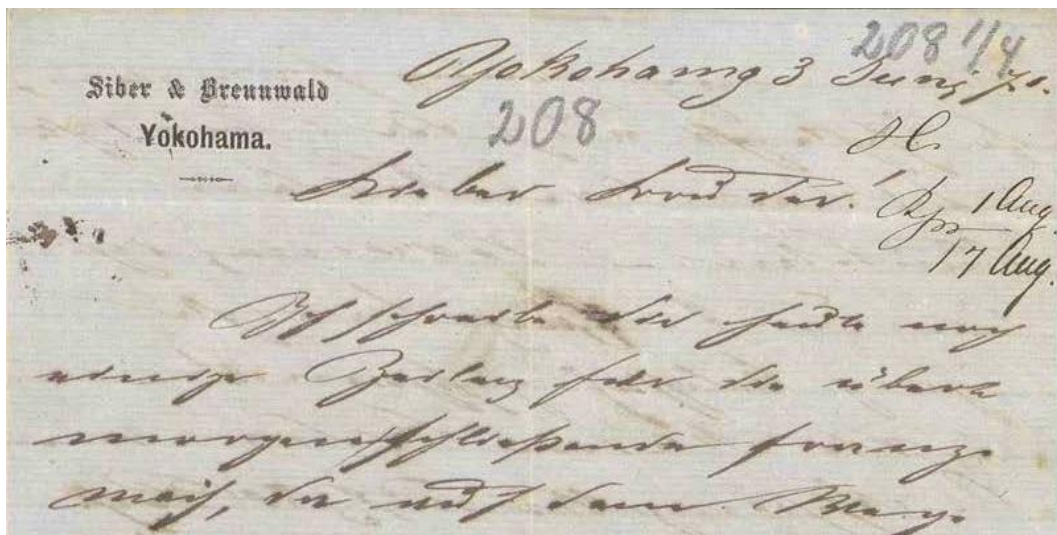 208 1/4
Siber & Brennwald
Yokohama 3 Juni 71.
Yokohama.
208
Lieber Bruder!
1 Aug.
17 Aug.
Ich schreibe dir heute noch
einige Zeilen für die über
morgen schließende franz.
mail, da auf dem